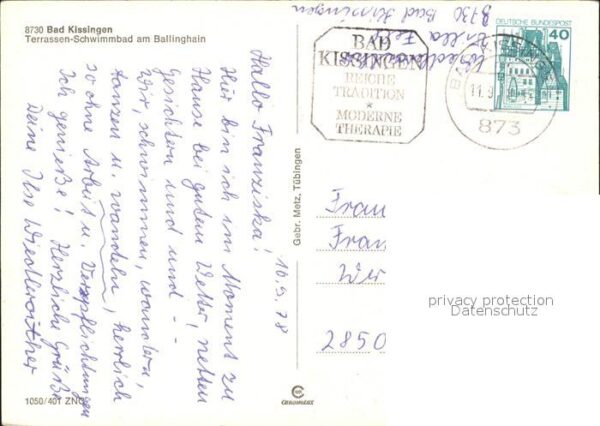 8730 Bad Kissingen
Terrassen-Schwimmbad am Ballinghain
10.9.78
Hallo Franziska!
Hier bin ich im Moment zu
Hause bei gutem Wetter, netten
Gesichtern und und - -
Wir, schwimmen, wandern,
tanzen u. wandeln, herrlich
so ohne Arbeit u. Verpflichtungen
Ich genieße! Herzliche Grüße
Deine Ilse
1050/401 ZNG
Gebr. Metz, Tübingen
CEKOMETZ
Villa
8730 Bad Kissingen
BAD
KISSINGEN
REICHE
TRADITION
*
MODERNE
THERAPIE
11.9
873
DEUTSCHE BUNDESPOST
40
Fran
Fran
Wer
2850
privacy protection
Datenschutz